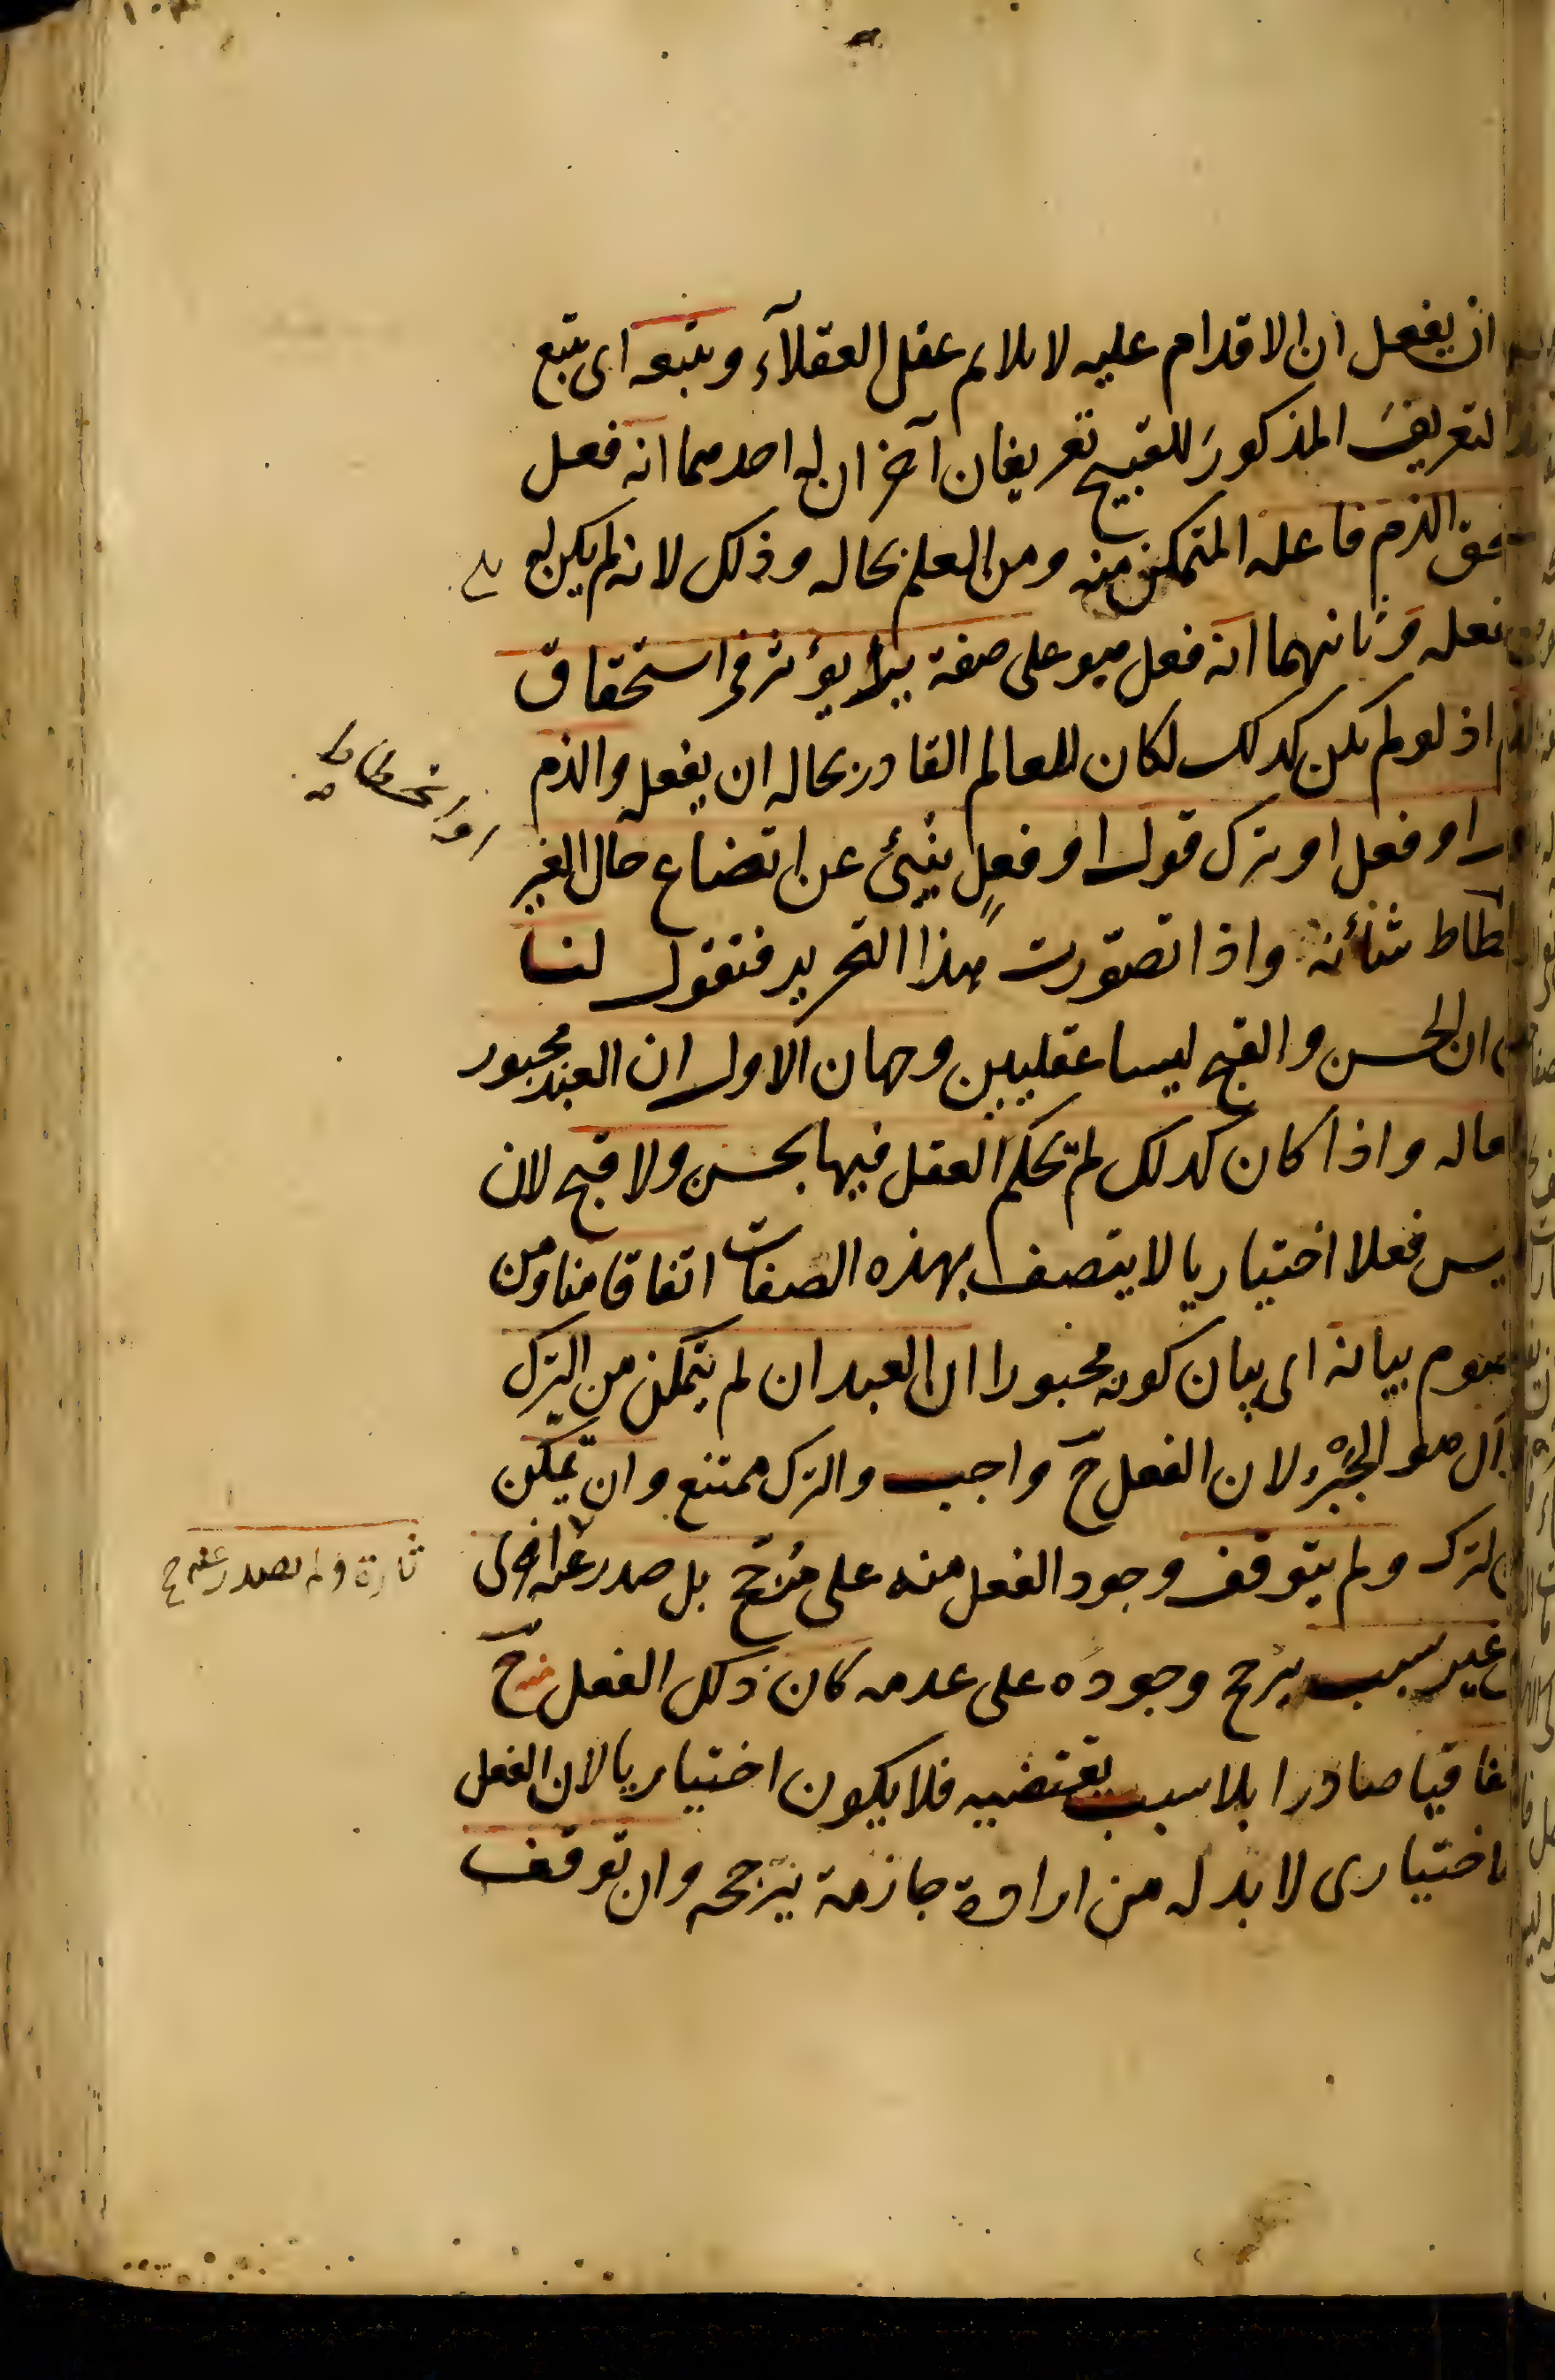 ان يفعل ان الاقدام عليه لا يلايم عقل العقلآء ويتبعه اى يتبع
التعريفَ المذكورَ للقبيح تعريفان آخران له احدهما انه فعل
الذم فاعله المتمكن منه ومن العلم بحاله وذلك لانه لم يكن له
فعله وثانيهما انه فعل هو على صفة يؤثر فى استحقاق
اذ لو لم يكن كذلك لكان للعالم القادر بحاله ان يفعل والذم
او فعل او ترك قول او فعلٍ ينبئ عن اتضاع حال الغير
وانحطاط
شأنه واذا تصوّرت هذا التحرير فنقول لنا
ان الحسن والقبح ليسا عقليين وجهان الاول ان العبد مجبور
واذا كان كذلك لم يحكم العقل فيها بحسن ولا قبح لان
ليس فعلا اختياريا لا يتصف بهذه الصفات اتفاقا منا ومن
بيانه اى بيان كونه مجبورا ان العبد ان لم يتمكن من الترك
هو الجَبْر لان الفعل ح واجب والترك ممتنع وان تمكن
الترك ولم يتوقف وجود الفعل منه على مرّجح بل صدر عنه
تارة ولم يصدر عنه
غير سبب يرجح وجوده على عدمه كان ذلك الفعل ح
صادرا بلا سبب يقتضيه فلا يكون اختياريا لان الفعل
الاختيارى لا بد له من ارادة جازمة يرجحه وان توقف